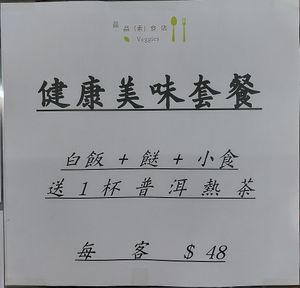 蔬蔬(素)食店
Veggies
健康美味套餐
白飯 + 餸 + 小食
送 1 杯普洱熱茶
每 客 $ 48